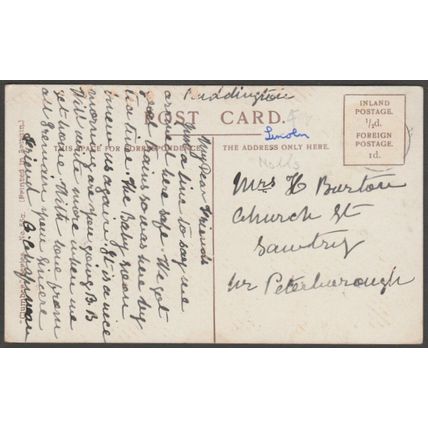 Paddington
POST CARD.
Lincoln
THIS SPACE FOR CORRESPONDENCE
THE ADDRESS ONLY HERE.
INLAND
POSTAGE.
1/2d.
FOREIGN
POSTAGE.
1d.
Mrs H Burton
Church St
Sawtry
nr Peterborough
My Dear Friends
Just a line to say we
arrived here safe. We got
good trains so was here by
tea time. The Baby
is a nice
morning are you going B B
Will write more when we
get home. With love from
all Remain your sincere
friend